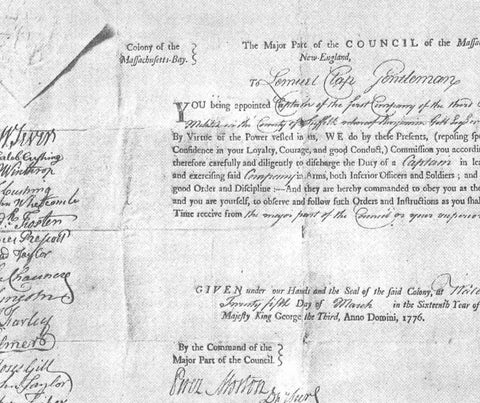 Colony of the
Massachusetts-Bay.
The Major Part of the COUNCIL of the Massa
New-England,
To Lemuel Clap Gentleman
YOU being appointed Captain of the first Company of the third
Militia in the County of Suffolk whereof Benjamin
By Virtue of the Power vested in us, WE do by these Presents, (reposing spe
Confidence in your Loyalty, Courage, and good Conduct,) Commission you accordin
therefore carefully and diligently to discharge the Duty of a Captain in lea
and exercising said Company in Arms, both Inferior Officers and Soldiers; and
good Order and Discipline :—And they are hereby commanded to obey you as the
and you are yourself, to observe and follow such Orders and Instructions as you shal
Time receive from the major part of the Council or your superior
GIVEN under our Hands and the Seal of the said Colony, at
Twenty fifth Day of March in the Sixteenth Year of
Majesty King George the Third, Anno Domini, 1776.
By the Command of the
Major Part of the Council.
Perez Morton
Dpy Secry
Caleb Cushing
Winthrop
Cushing
Whetcomb
Foster
Prescott
Taylor
Chauncy
Farley
Palmer
Moses Gill
Taylor